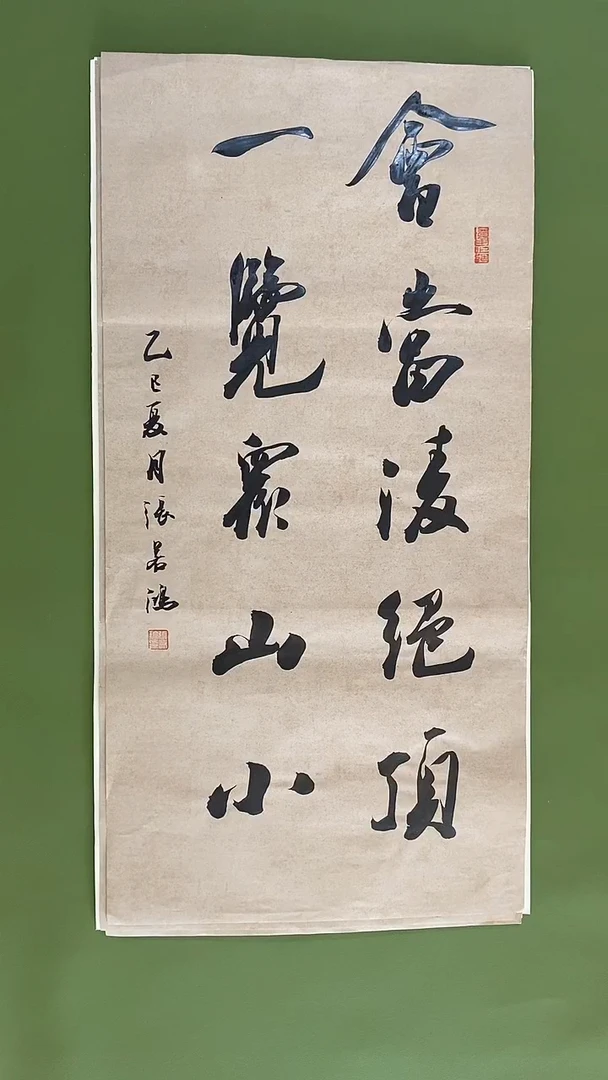 會當凌絕頂
一覽眾山小
乙巳夏月張若鴻